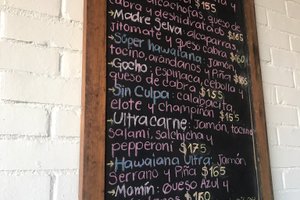 alcachofas, queso de
y deshidratados $165
→ Madre Selva: alcaparras,
jitomate y queso cabra
$165
→ Súper hawaiana: Jamón,
tocino, arándanos y Piña
$165
→ Gocho: espinaca, cebolla y
queso de cabra $155
→ Sin Culpa: calabacita,
elote y champiñón $155
→ Ultracarne: Jamón, tocino,
salami, salchicha y
pepperoni $175
→ Hawaiana Ultra: Jamón
Serrano y Piña $165
→ Mamín: Queso Azul y
$150